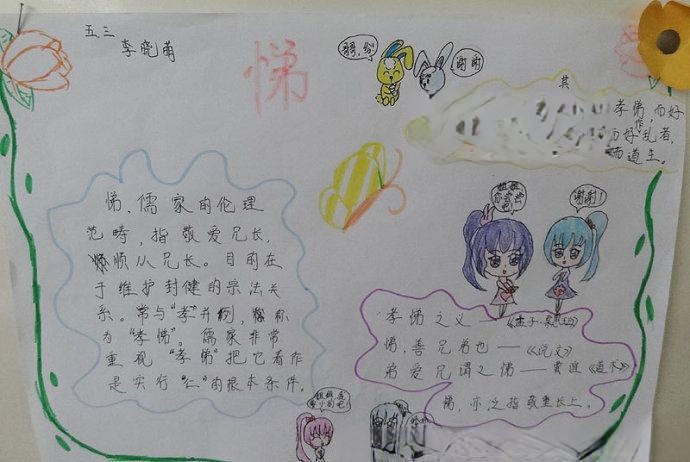 五三
李晓萌
悌
谢谢
其
孝悌,而好
作
好乱者,
而道生。
悌,儒家的伦理
范畴,指敬爱兄长,
顺从兄长。目的在
于维护封健的宗法关
系。常与“孝”并列,称
为“孝悌”。儒家非常
重视“孝悌”把它看作
是实行“仁”的根本条件。
姐姐
你尝尝
吧!
谢谢!
孝悌之义——《孟子·梁惠王》
悌,善兄弟也——《说文》
弟爱兄谓之悌——贾谊《道术》
悌,亦泛指敬重长上。